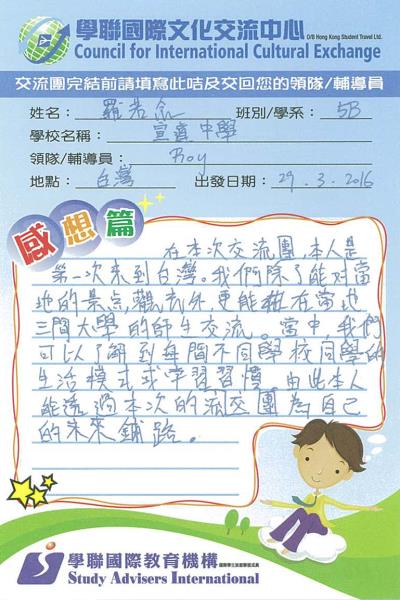 學聯國際文化交流中心 O/B Hong Kong Student Travel Ltd.
Council for International Cultural Exchange
交流團完結前請填寫此咭及交回您的領隊/輔導員
姓名： 羅若 班別/學系： 5B
學校名稱： 宣道中學
領隊/輔導員： Roy
地點： 台灣 出發日期： 29.3.2016
感想篇
在本次交流團，本人是
第一次來到台灣。我們除了能對當
地的景點觀光外，更能在當地
三間大學的師生交流。當中，我們
可以了解到每間不同學校同學的
生活模式或學習習慣，由此本人
能透過本次的交團為自己
的未來鋪路。
學聯國際教育機構
Study Advisers International